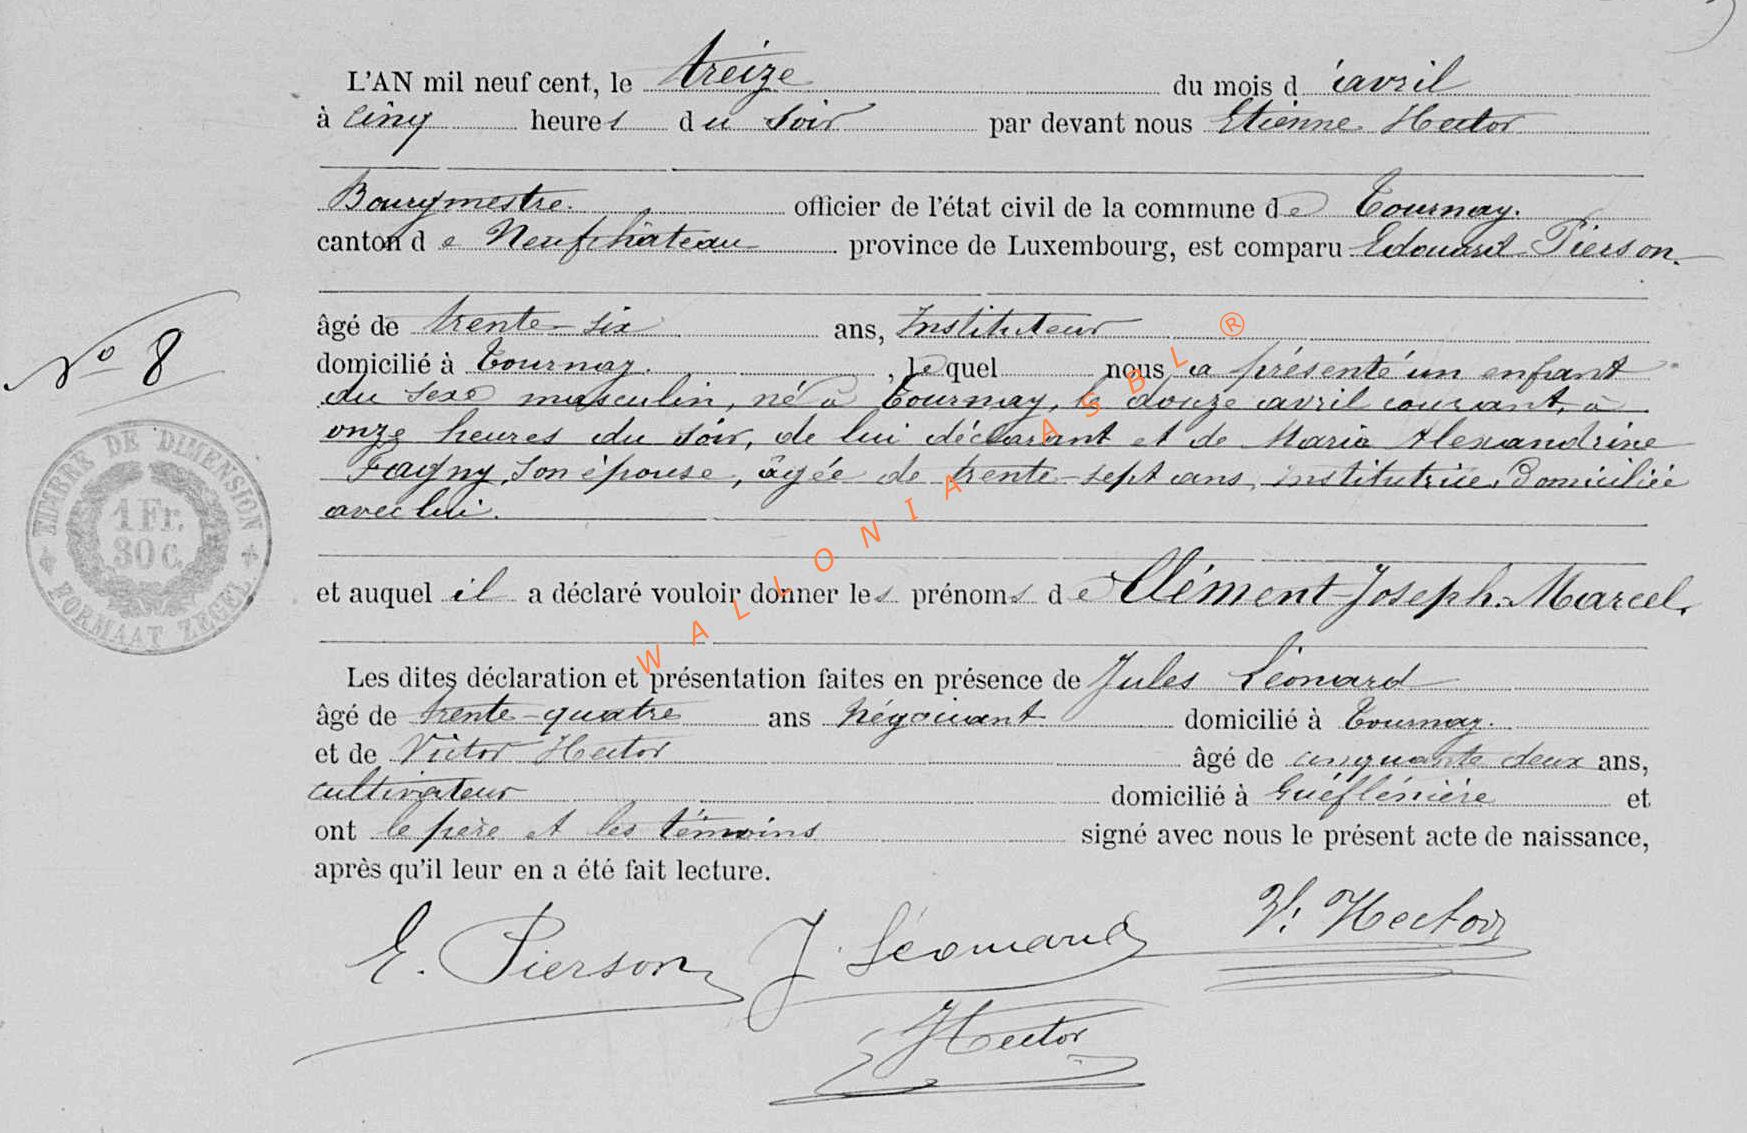 L'AN mil neuf cent, le treize du mois d'avril
à cinq heures du soir par devant nous Etienne Hector
Bourgmestre. officier de l'état civil de la commune de Tournay.
canton de Neufchâteau province de Luxembourg, est comparu Edouard Pierson
âgé de trente-six ans, Instituteur
domicilié à Tournay. , lequel nous a présenté un enfant
du sexe masculin, né à Tournay, le douze avril courant, à
onze heures du soir, de lui déclarant et de Maria Alexandrine
Fagny, son épouse, âgée de trente-sept ans, institutrice, Domiciliée
avec lui.
N° 8
TIMBRE DE DIMENSION
1 Fr.
30 c.
FORMAAT ZEGEL
et auquel il a déclaré vouloir donner les prénoms de Clément-Joseph-Marcel.
Les dites déclaration et présentation faites en présence de Jules Léonard
âgé de trente-quatre ans négociant domicilié à Tournay.
et de Victor Hector âgé de cinquante deux ans,
cultivateur domicilié à et
ont le père et les témoins signé avec nous le présent acte de naissance,
après qu'il leur en a été fait lecture.
E. Pierson J. Léonard V. Hector
Hector
WALLONIA ASBL ®